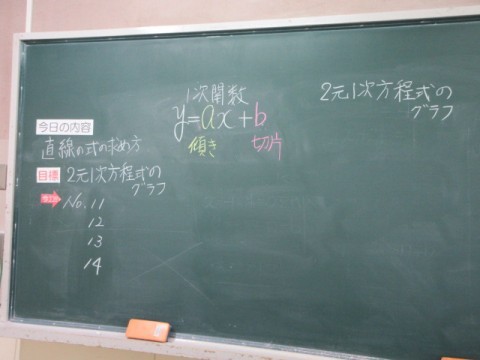 今日の内容
直線の式の求め方
目標 2元1次方程式の
グラフ
No. 11
12
13
14
1次関数
y=ax+b
傾き 切片
2元1次方程式の
グラフ